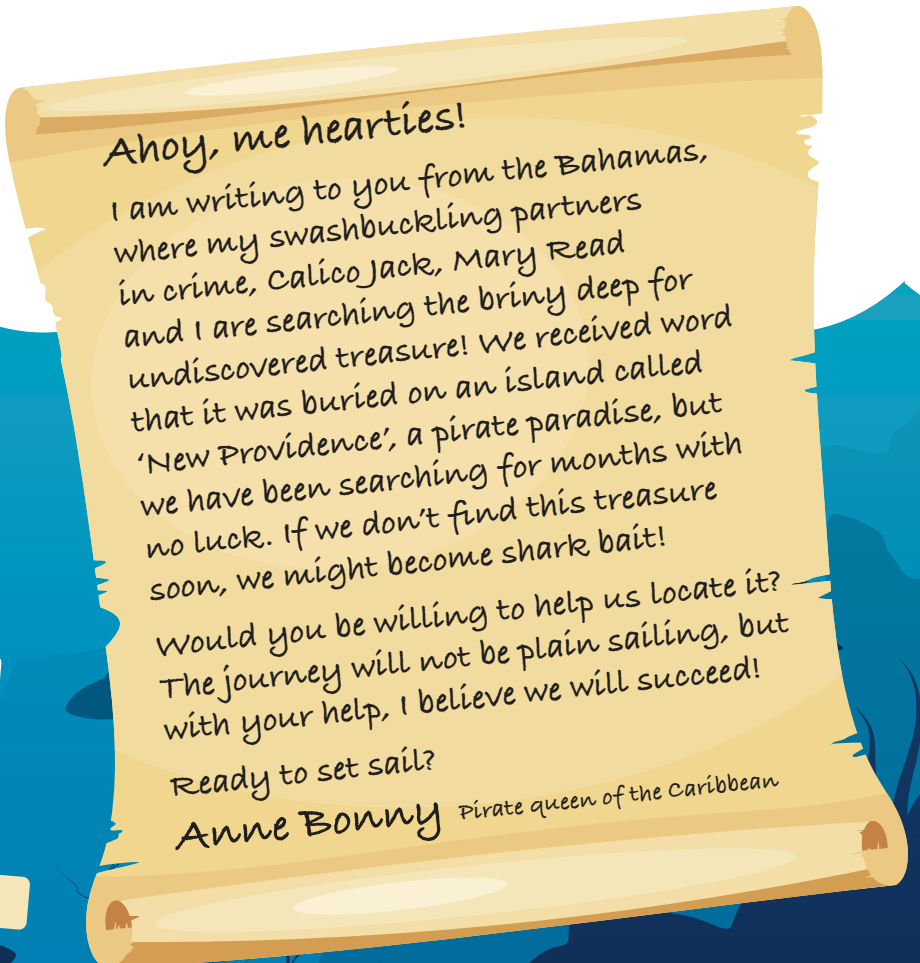 Ahoy, me hearties!
I am writing to you from the Bahamas,
where my swashbuckling partners
in crime, Calico Jack, Mary Read
and I are searching the briny deep for
undiscovered treasure! We received word
that it was buried on an island called
‘New Providence’, a pirate paradise, but
we have been searching for months with
no luck. If we don’t find this treasure
soon, we might become shark bait!
Would you be willing to help us locate it?
The journey will not be plain sailing, but
with your help, I believe we will succeed!
Ready to set sail?
Anne Bonny Pirate queen of the Caribbean